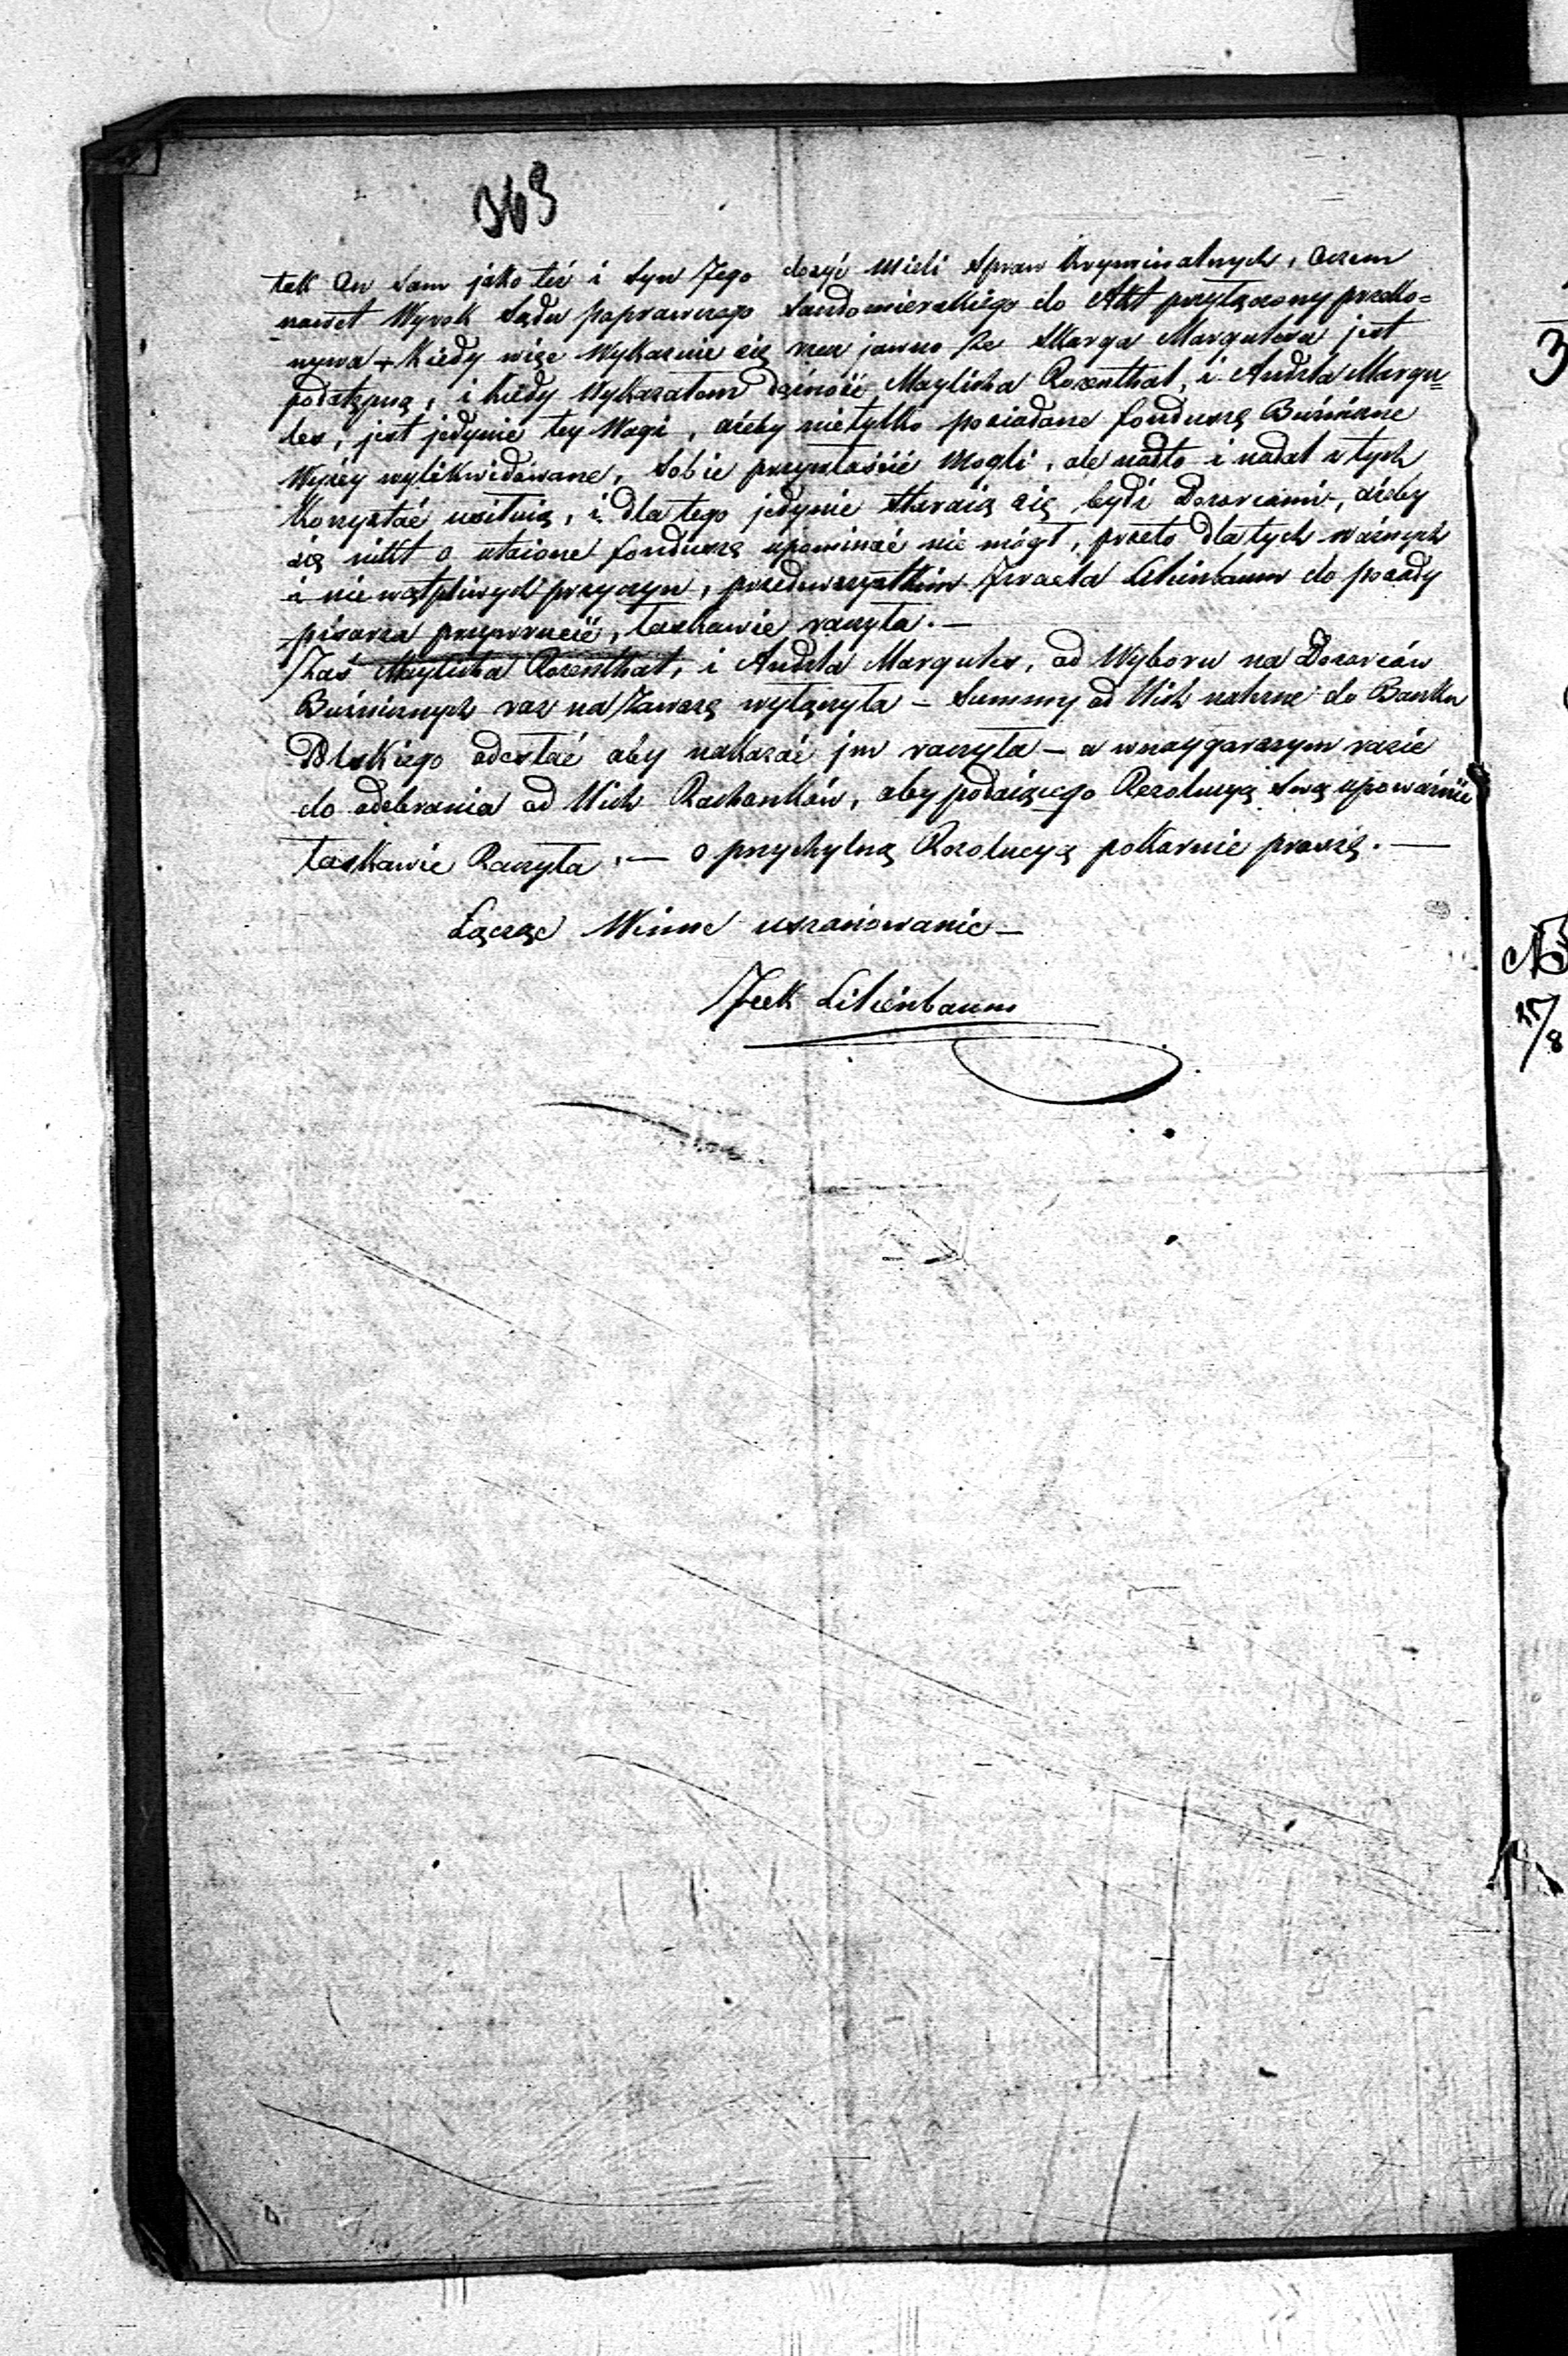 363
tak On sam jako też i Syn Jego dosyć mieli Spraw kryminalnych, Oczem
nawet Wyrok Sądu poprawczego Sandomierskiego do Akt przyłączony przeko=
nywa + Kiedy więc Wykazuie się rzecz jawno że Skarga Margulesa jest
podstępną, i kiedy Wykazałem dążność Maylicha Rozenthal, i Andzla Margu=
les, jest jedynie tey Wagi, ażeby nietylko posiadane fondusze Bużnicze
Wyżey wylikwidowane, Sobie przywłaścić Mogli, ale nadto i nadal z tych
Korzystać usiłuią, i dla tego jedynie Staraią się bydź Dozorcami, ażeby
się nikt o utaione fondusze upominać nie mógł, przeto dla tych ważnych
i niewątpliwych przyczyn, przedewszystkim Izraela Lilienbaum do posady
pisarza przywrucić, łaskawie raczyła. —
Zaś Maylicha Rozenthal, i Andzla Margules, od Wyboru na Dozorców
Bużniczych raz na Zawsze wyłączyła – Summy od Nich należne do Banku
Polskiego odesłać aby nakazać jm raczyła – a wnaygorszym razie
do odebrania od Nich Rachonków, aby podaiącego Rezolucyą swą upoważnić
łaskawie Raczyła, — o przychylną Rezolucyą pokornie proszę. —
Łącząc Winne uszanowanie –
Jcek Lilienbaum